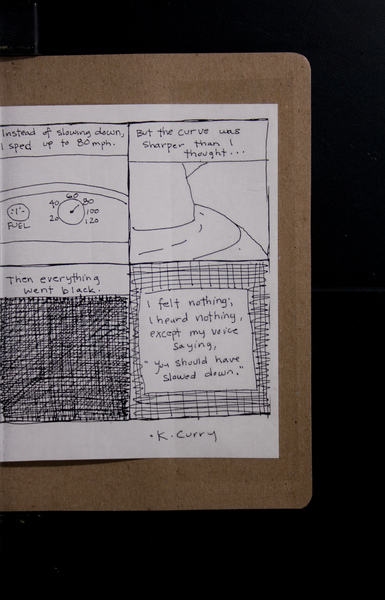 Instead of slowing down,
I sped up to 80 mph.
But the curve was
sharper than I
thought...
60
40 80
100
20 120
FUEL
Then everything
went black.
I felt nothing,
I heard nothing,
except my voice
saying,
"You should have
slowed down."
K. Curry